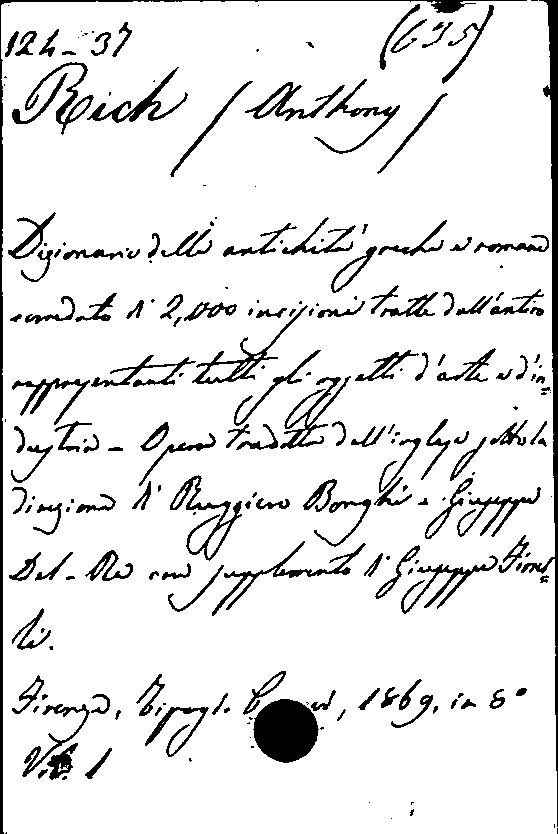 124-37 (635)
Rich / Anthony /
Dizionario delle antichità greche e romane
corredato di 2,000 incisioni tratte dall'antico
rappresentanti tutti gli oggetti d'arte e d'in=
dustria - Opera tradotta dall'inglese sotto la
direzione di Ruggiero Bonghi e Giuseppe
Del-Re con supplemento di Giuseppe Fiorel=
li.
Firenze, Tipogr. , 1869, in 8°
Vol. 1